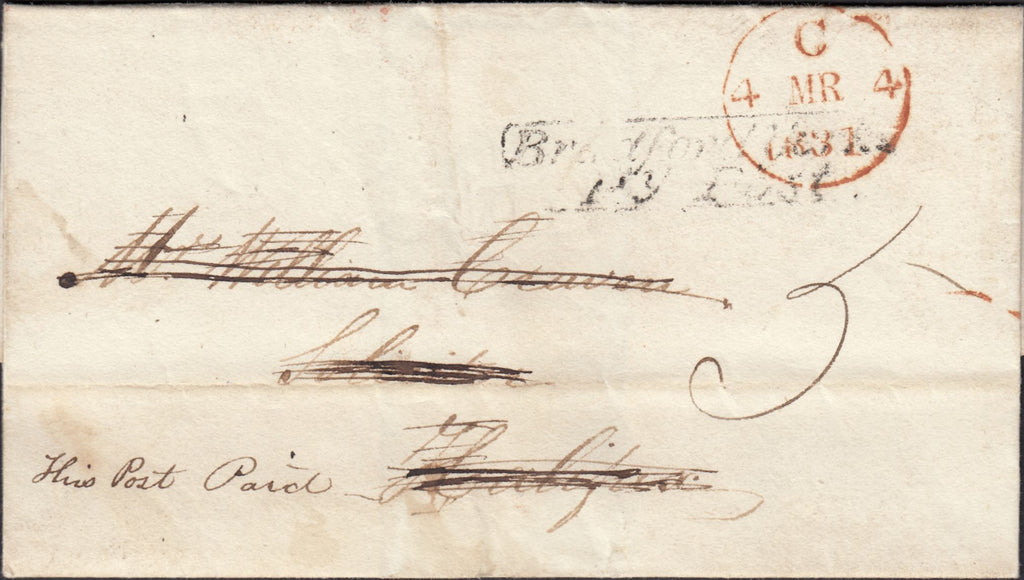 C
4 MR 4
1831
Bradford Yorks
Py Post.
Mr. William Craven
Solicitor
5
Halifax
This Post Paid